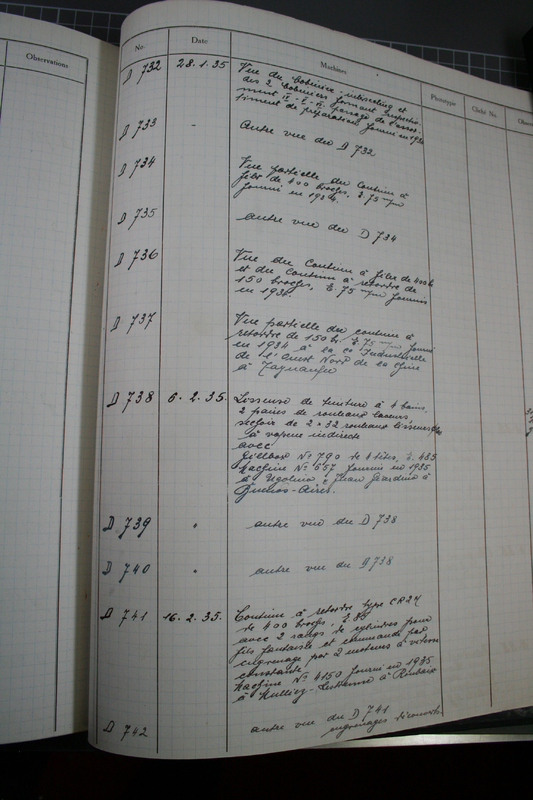 Observations
No. Date Machines Phototypie Cliché No. Obser
D 732 28.1.35 Vue du bobinier intersecting et
des 2 bobiniers formant
passage de l'assor-
timent de préparation fourni en 1934
D 733 " Autre vue du D 732
D 734 Vue partielle du continu à
filer de 400 broches. E. 75 m/m
fourni en 1934.
D 735 autre vue du D 734
D 736 Vue du Continu à filer de 400 b
et du Continu à retordre de
150 broches. E. 75 m/m fournis
en 1934.
D 737 Vue partielle du continu à
retordre de 150 b. E. 75 m/m fourni
en 1934 à la Co Industrielle
de l'Ouest Nord de la Chine
à
D 738 6.2.35. Lisseuse de teinture à 4 bains,
2 paires de rouleaux laveurs,
séchoir de 2 x 32 rouleaux lisseurs
à vapeur indirecte
avec
Gillbox No 790 de 4 têtes, E. 485
Machine No 657 fourni en 1935
à Ugolino & Juan Giardino à
Buenos-Aires.
D 739 " autre vue du D 738
D 740 " autre vue du D 738
D 741 16.2.35. Continu à retordre type CR2M
de 400 broches, E. 85
avec 2 rangs de cylindres pour
fils fantaisie et commande par
engrenage par 2 moteurs à vitesse
constante
Machine No 4150 fourni en 1935
à Mulliez-Lestienne à Roubaix
D 742 autre vue du D 741
engrenages découverts